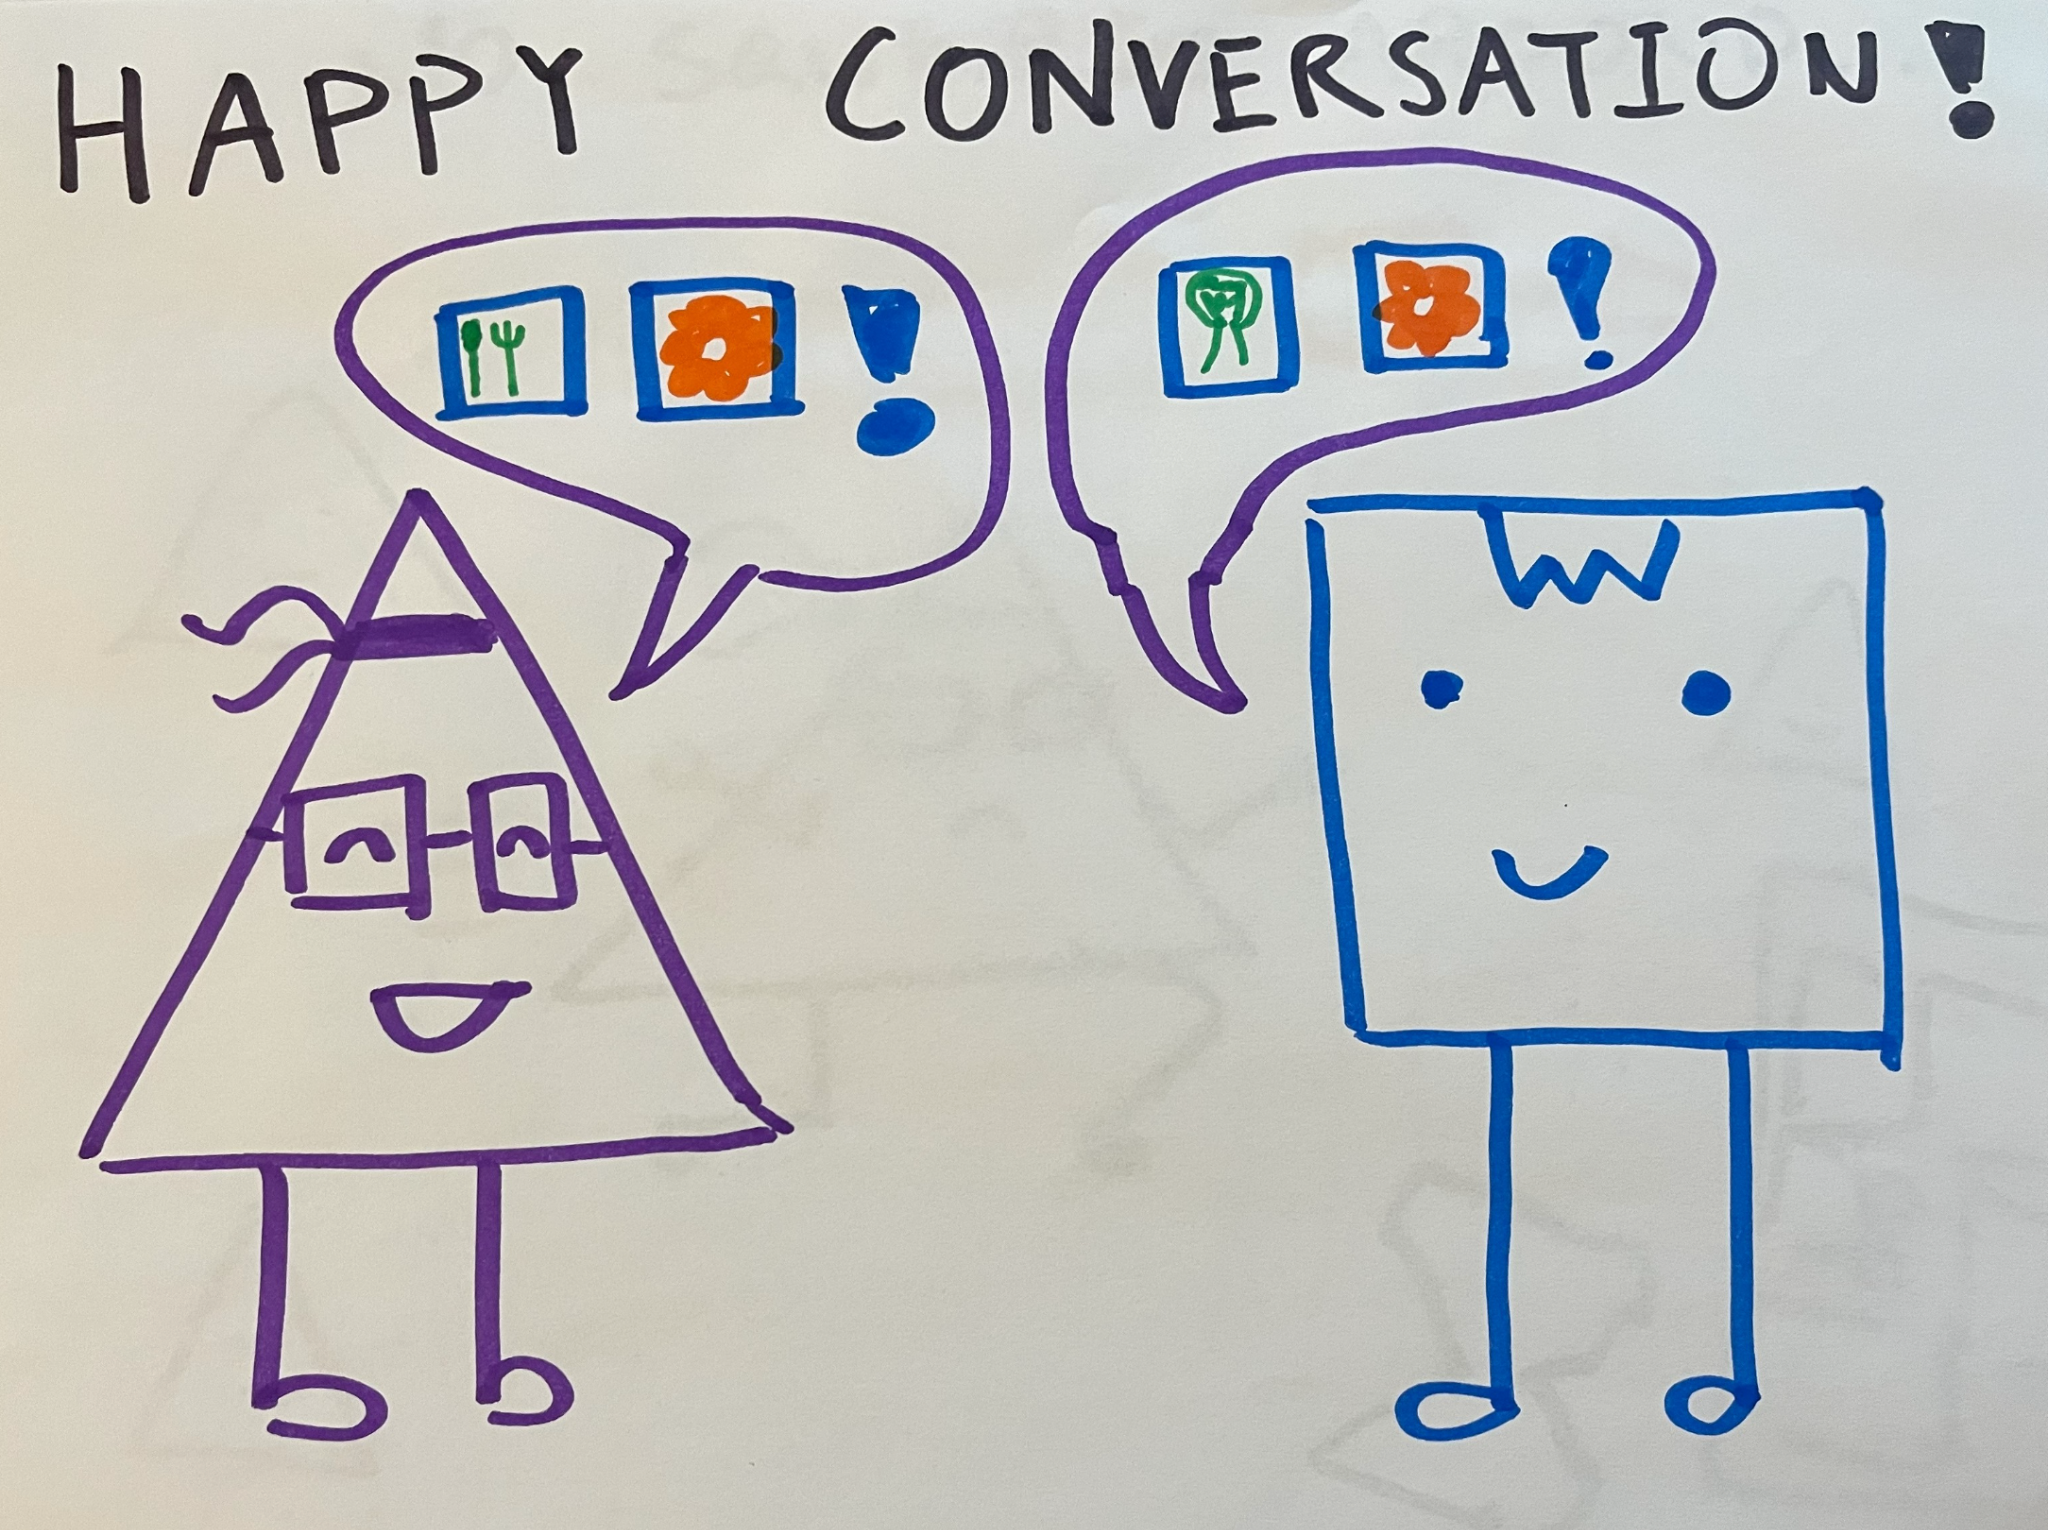 HAPPY CONVERSATION!
!
!